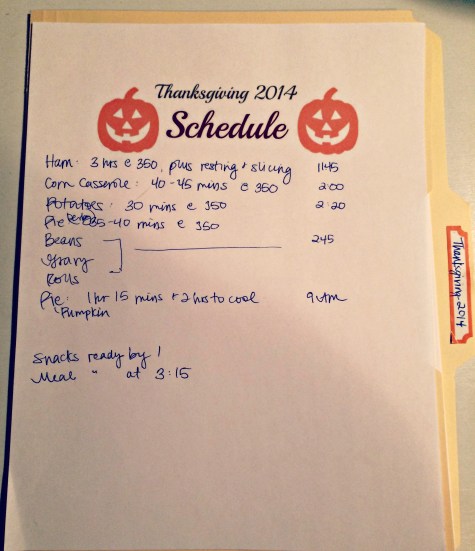 Thanksgiving 2014
Schedule
Ham: 3 hrs @ 350, plus resting + slicing 1145
Corn Casserole: 40-45 mins @ 350 2:00
Potatoes: 30 mins @ 350 2:20
Pie 35-40 mins @ 350
Beans 245
Gravy
Rolls
Pie: 1 hr 15 mins + 2 hrs to cool 9 AM
Pumpkin
Snacks ready by 1
Meal " at 3:15
Thanksgiving 2014